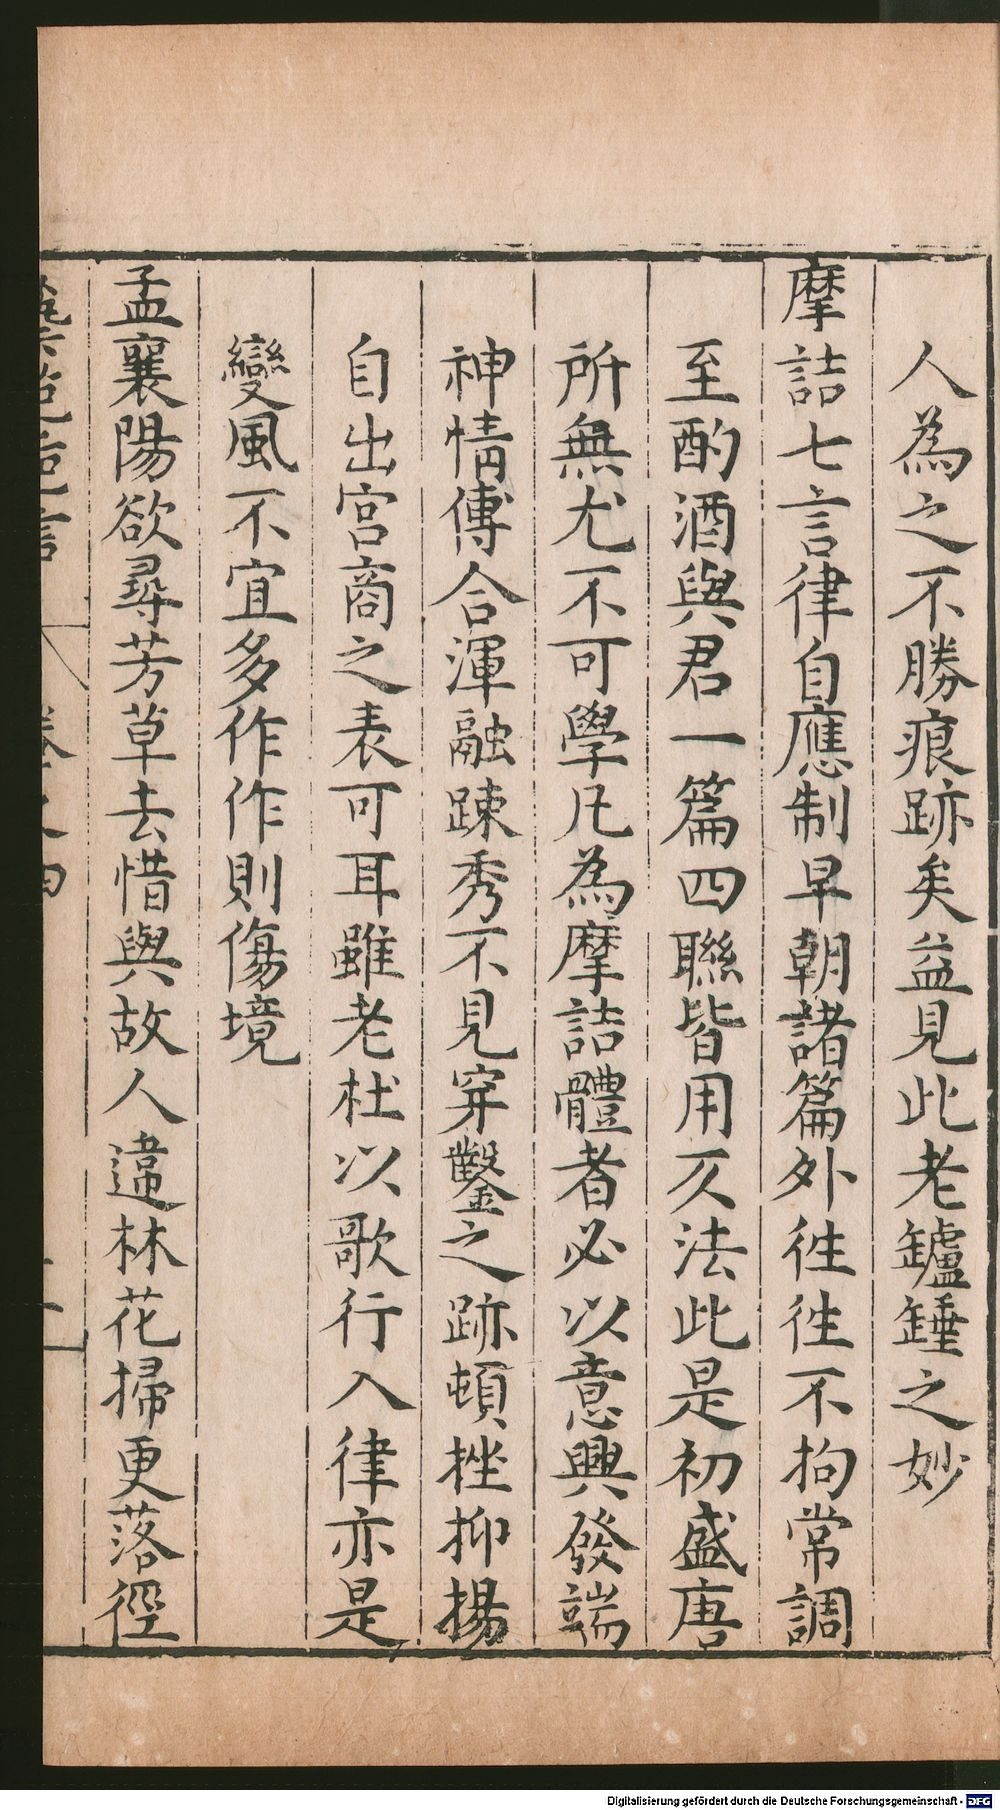 人為之不勝痕跡矣益見此老鑪錘之妙
摩詰七言律自應制早朝諸篇外徃徃不拘常調
至酌酒與君一篇四聯皆用仄法此是初盛唐
所無尤不可學凡為摩詰體者必以意興發端
神情傅合渾融踈秀不見穿鑿之跡頓挫抑揚
自出宮商之表可耳雖老杜以歌行入律亦是
變風不宜多作作則傷境
孟襄陽欲尋芳草去惜與故人違林花掃更落徑
Digitalisierung gefördert durch die Deutsche Forschungsgemeinschaft - DFG